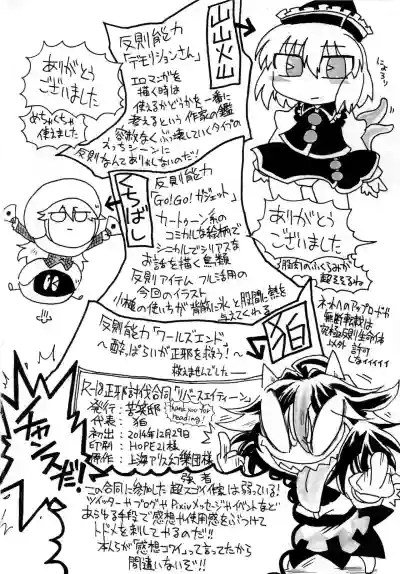 山山火山
反則能力
「デモリションさん」
エロマンガを
描く時は
使えるかどうかを一番に
考えるという作家の鑑
容赦なくぶっ壊していくタイプの
えっちシーンに
反則なんてありゃしないのだ!
ありがとう
ございました
めちゃくちゃ
使えました
くちばし
反則能力
「Go!Go!ガジェット」
カートゥーン系の
コミカルな絵柄で
シニカルでシリアスな
お話も描く鳥類
反則アイテム フルに活用の
今回のイラスト
小槌の使いちが背筋に氷と股間に熱を
与えてくれる
ありがとう
ございました
狛
反則能力「ワールズエンド
~酔っぱらいが正邪を救う!~
救えませんでした
ネットへのアップロードや
無断転載は
究極反則生命体
以外 許可
しなァイイイイ
R-18正邪討伐合同「リバースエイティーン」
発行:苦楽邸
代表:狛
初出:2014年12月29日
印刷:HOPE21様
原作:上海アリス幻樂団様
thank you for
reading!
キャオラだァ!
強者
この合同に参加した超スゴイ作家は弱っている!
ツイッターやブログやPixivメッセージやイベントなど
あらゆる手段で感想や使用感をぶつけて
トドメを刺してやるのだ!!
本人らが「感想コワイ」って言ってたから
間違いないぞ!!